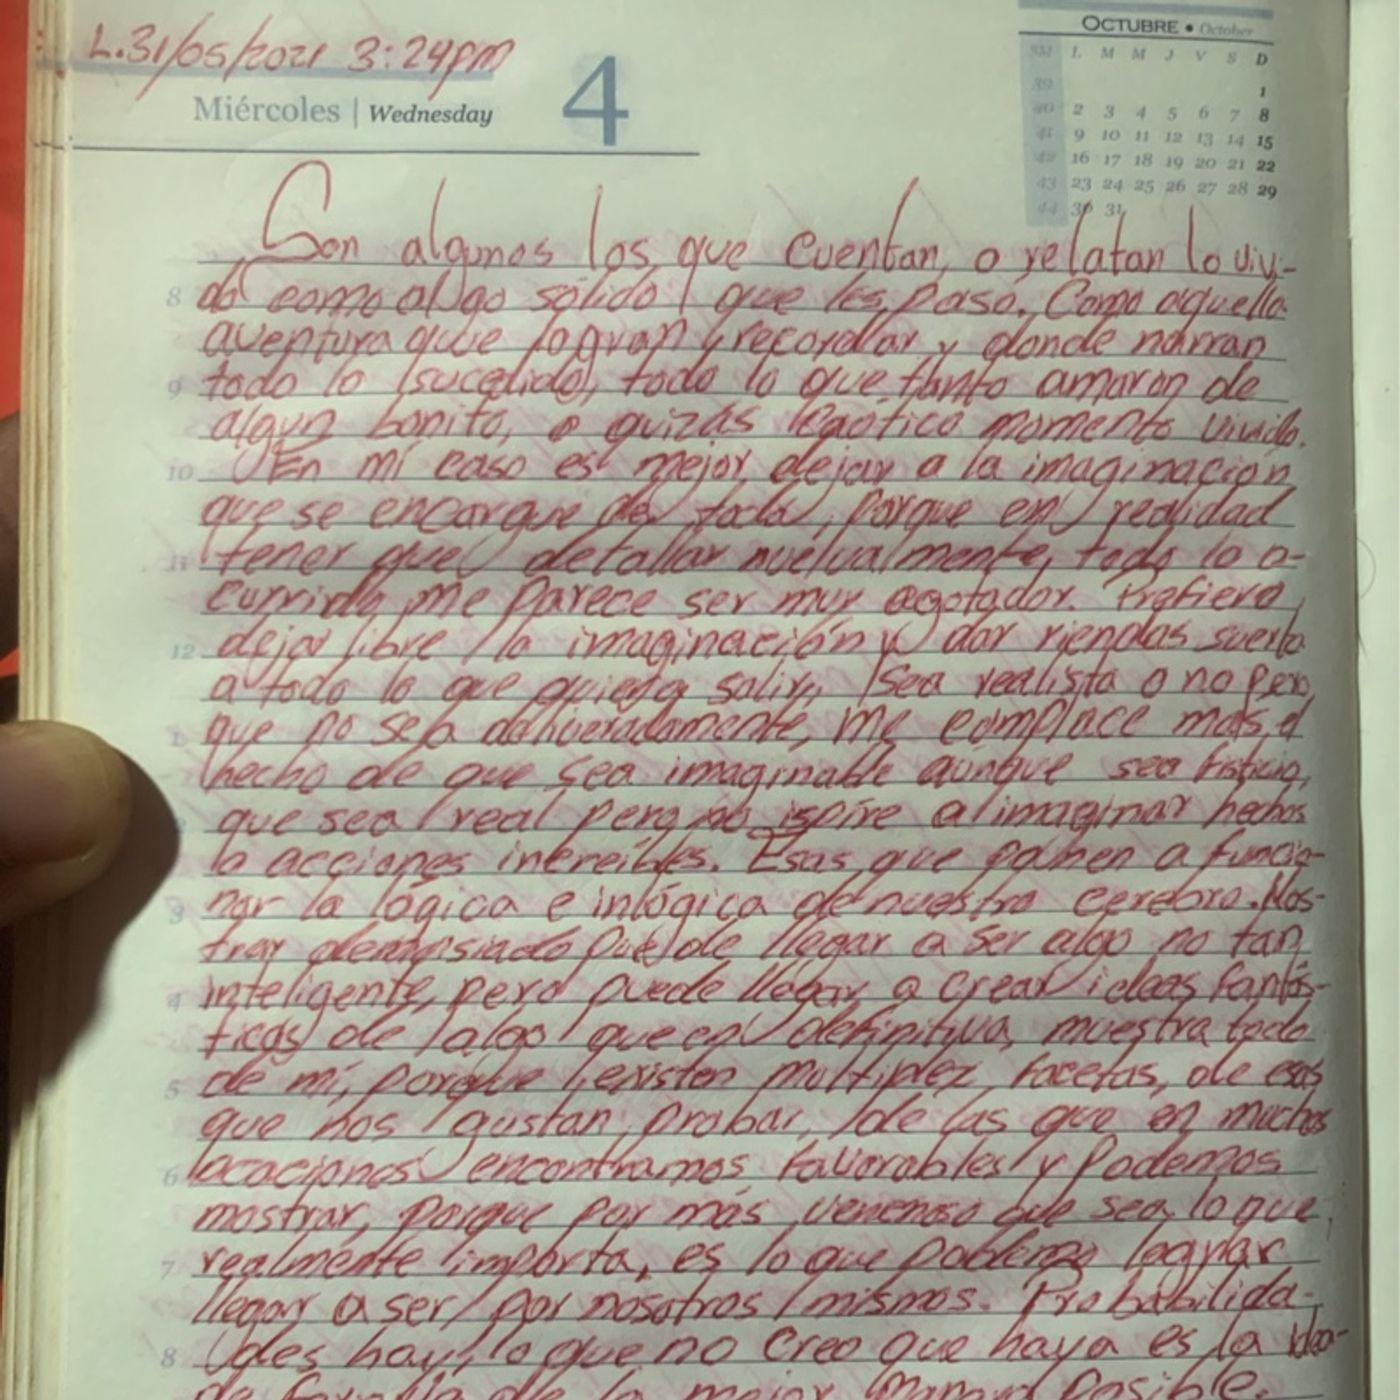 L.31/05/2021 3:24pm
Miércoles | Wednesday 4
OCTUBRE • October
SM L M M J V S D
39 1
40 2 3 4 5 6 7 8
41 9 10 11 12 13 14 15
42 16 17 18 19 20 21 22
43 23 24 25 26 27 28 29
44 30 31
Son algunos los que cuentan, o relatan lo vivi-
8 do como algo sólido que les paso. Como aquella
aventura que logran recordar y donde narran
9 todo lo sucedido, todo lo que tanto amaron de
algun bonito, o quizás caótico momento vivido.
10 En mi caso es mejor dejar a la imaginación
que se encargue de todo, porque en realidad
11 tener que detallar todo lo o-
currido me parece ser muy agotador. Prefiero
12 dejar libre la imaginación y dar riendas suerta
a todo lo que quiera salir, sea realista o no pero
que no sea deliberadamente, me complace mas el
hecho de que sea imaginable aunque sea
que sea real pero no ispire a imaginar hechos
o acciones increíbles. Esas que ponen a funcio-
3 nar la lógica e inlógica de nuestro cerebro. Mos-
trar demasiado puede llegar a ser algo no tan
4 inteligente, pero puede llegar a crear ideas fantás-
ticas de algo que en definitiva, muestra todo
5 de mí, porque existen multiplez facetas, de esas
que nos gustan probar, de las que en muchas
6 ocaciones encontramos favorables y podemos
mostrar, porque por más venenoso que sea, lo que
7 realmente importa, es lo que podemos lograr
llegar a ser por nosotros mismos. Probabilida-
8 des hay, lo que no creo que haya es la
de la mejor manera posible